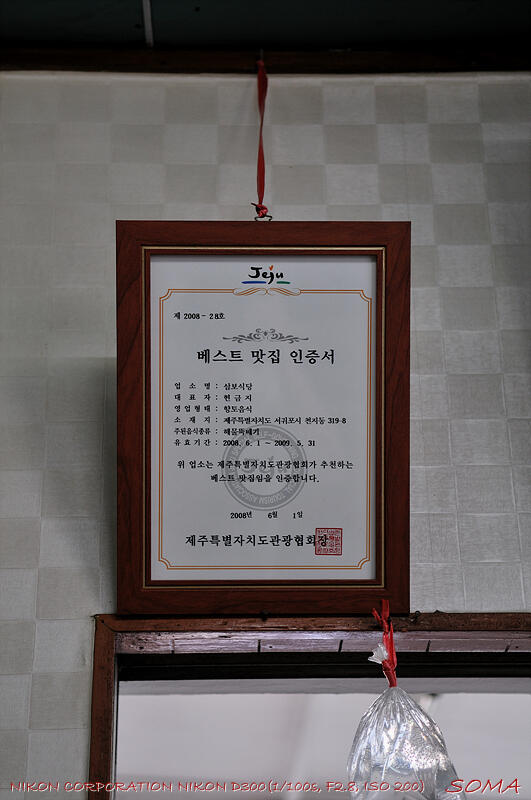 Jeju
제 2008 - 28호
베스트 맛집 인증서
업 소 명 : 삼보식당
대 표 자 : 현금지
영업형태 : 향토음식
소 재 지 : 제주특별자치도 서귀포시 천지동 319-8
주된음식종류 : 해물뚝배기
유효기간 : 2008. 6. 1 ~ 2009. 5. 31
위 업소는 제주특별자치도관광협회가 추천하는
베스트 맛집임을 인증합니다.
2008년 6월 1일
제주특별자치도관광협회장
NIKON CORPORATION NIKON D300(1/100s, F2.8, ISO 200) SOMA